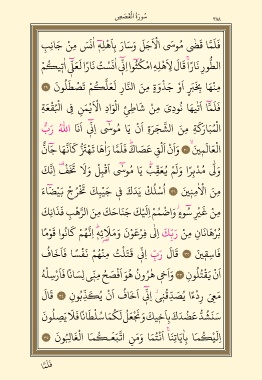 سُورَةُ الْقَصَصِ
٣٨٨
فَلَمَّا قَضٰى مُوسَى الْاَجَلَ وَسَارَ بِاَهْلِهٖٓ اٰنَسَ مِنْ جَانِبِ
الطُّورِ نَارًاۚ قَالَ لِاَهْلِهِ امْكُثُٓوا اِنّٖٓي اٰنَسْتُ نَارًا لَعَلّٖٓي اٰتٖيكُمْ
مِنْهَا بِخَبَرٍ اَوْ جَذْوَةٍ مِنَ النَّارِ لَعَلَّكُمْ تَصْطَلُونَ ﴿٢٩﴾
فَلَمَّٓا اَتٰيهَا نُودِيَ مِنْ شَاطِئِ الْوَادِ الْاَيْمَنِ فِي الْبُقْعَةِ
الْمُبَارَكَةِ مِنَ الشَّجَرَةِ اَنْ يَا مُوسٰٓى اِنّٖٓي اَنَا اللّٰهُ رَبُّ
الْعَالَمٖينَ ﴿٣٠﴾ وَاَنْ اَلْقِ عَصَاكَۜ فَلَمَّا رَاٰهَا تَهْتَزُّ كَاَنَّهَا جَٓانٌّ
وَلّٰى مُدْبِرًا وَلَمْ يُعَقِّبْۜ يَا مُوسٰٓى اَقْبِلْ وَلَا تَخَفْ اِنَّكَ
مِنَ الْاٰمِنٖينَ ﴿٣١﴾ اُسْلُكْ يَدَكَ فٖي جَيْبِكَ تَخْرُجْ بَيْضَٓاءَ
مِنْ غَيْرِ سُٓوءٍ وَاضْمُمْ اِلَيْكَ جَنَاحَكَ مِنَ الرَّهْبِ فَذَانِكَ
بُرْهَانَانِ مِنْ رَبِّكَ اِلٰى فِرْعَوْنَ وَمَلَا۬ئِهٖۜ اِنَّهُمْ كَانُوا قَوْمًا
فَاسِقٖينَ ﴿٣٢﴾ قَالَ رَبِّ اِنّٖي قَتَلْتُ مِنْهُمْ نَفْسًا فَاَخَافُ
اَنْ يَقْتُلُونِ ﴿٣٣﴾ وَاَخٖي هٰرُونُ هُوَ اَفْصَحُ مِنّٖي لِسَانًا فَاَرْسِلْهُ
مَعِيَ رِدْءًا يُصَدِّقُنٖٓيۘ اِنّٖٓي اَخَافُ اَنْ يُكَذِّبُونِ ﴿٣٤﴾ قَالَ
سَنَشُدُّ عَضُدَكَ بِاَخٖيكَ وَنَجْعَلُ لَكُمَا سُلْطَانًا فَلَا يَصِلُونَ
اِلَيْكُمَاۚ بِاٰيَاتِنَاۚ اَنْتُمَا وَمَنِ اتَّبَعَكُمَا الْغَالِبُونَ ﴿٣٥﴾
فَلَمَّا